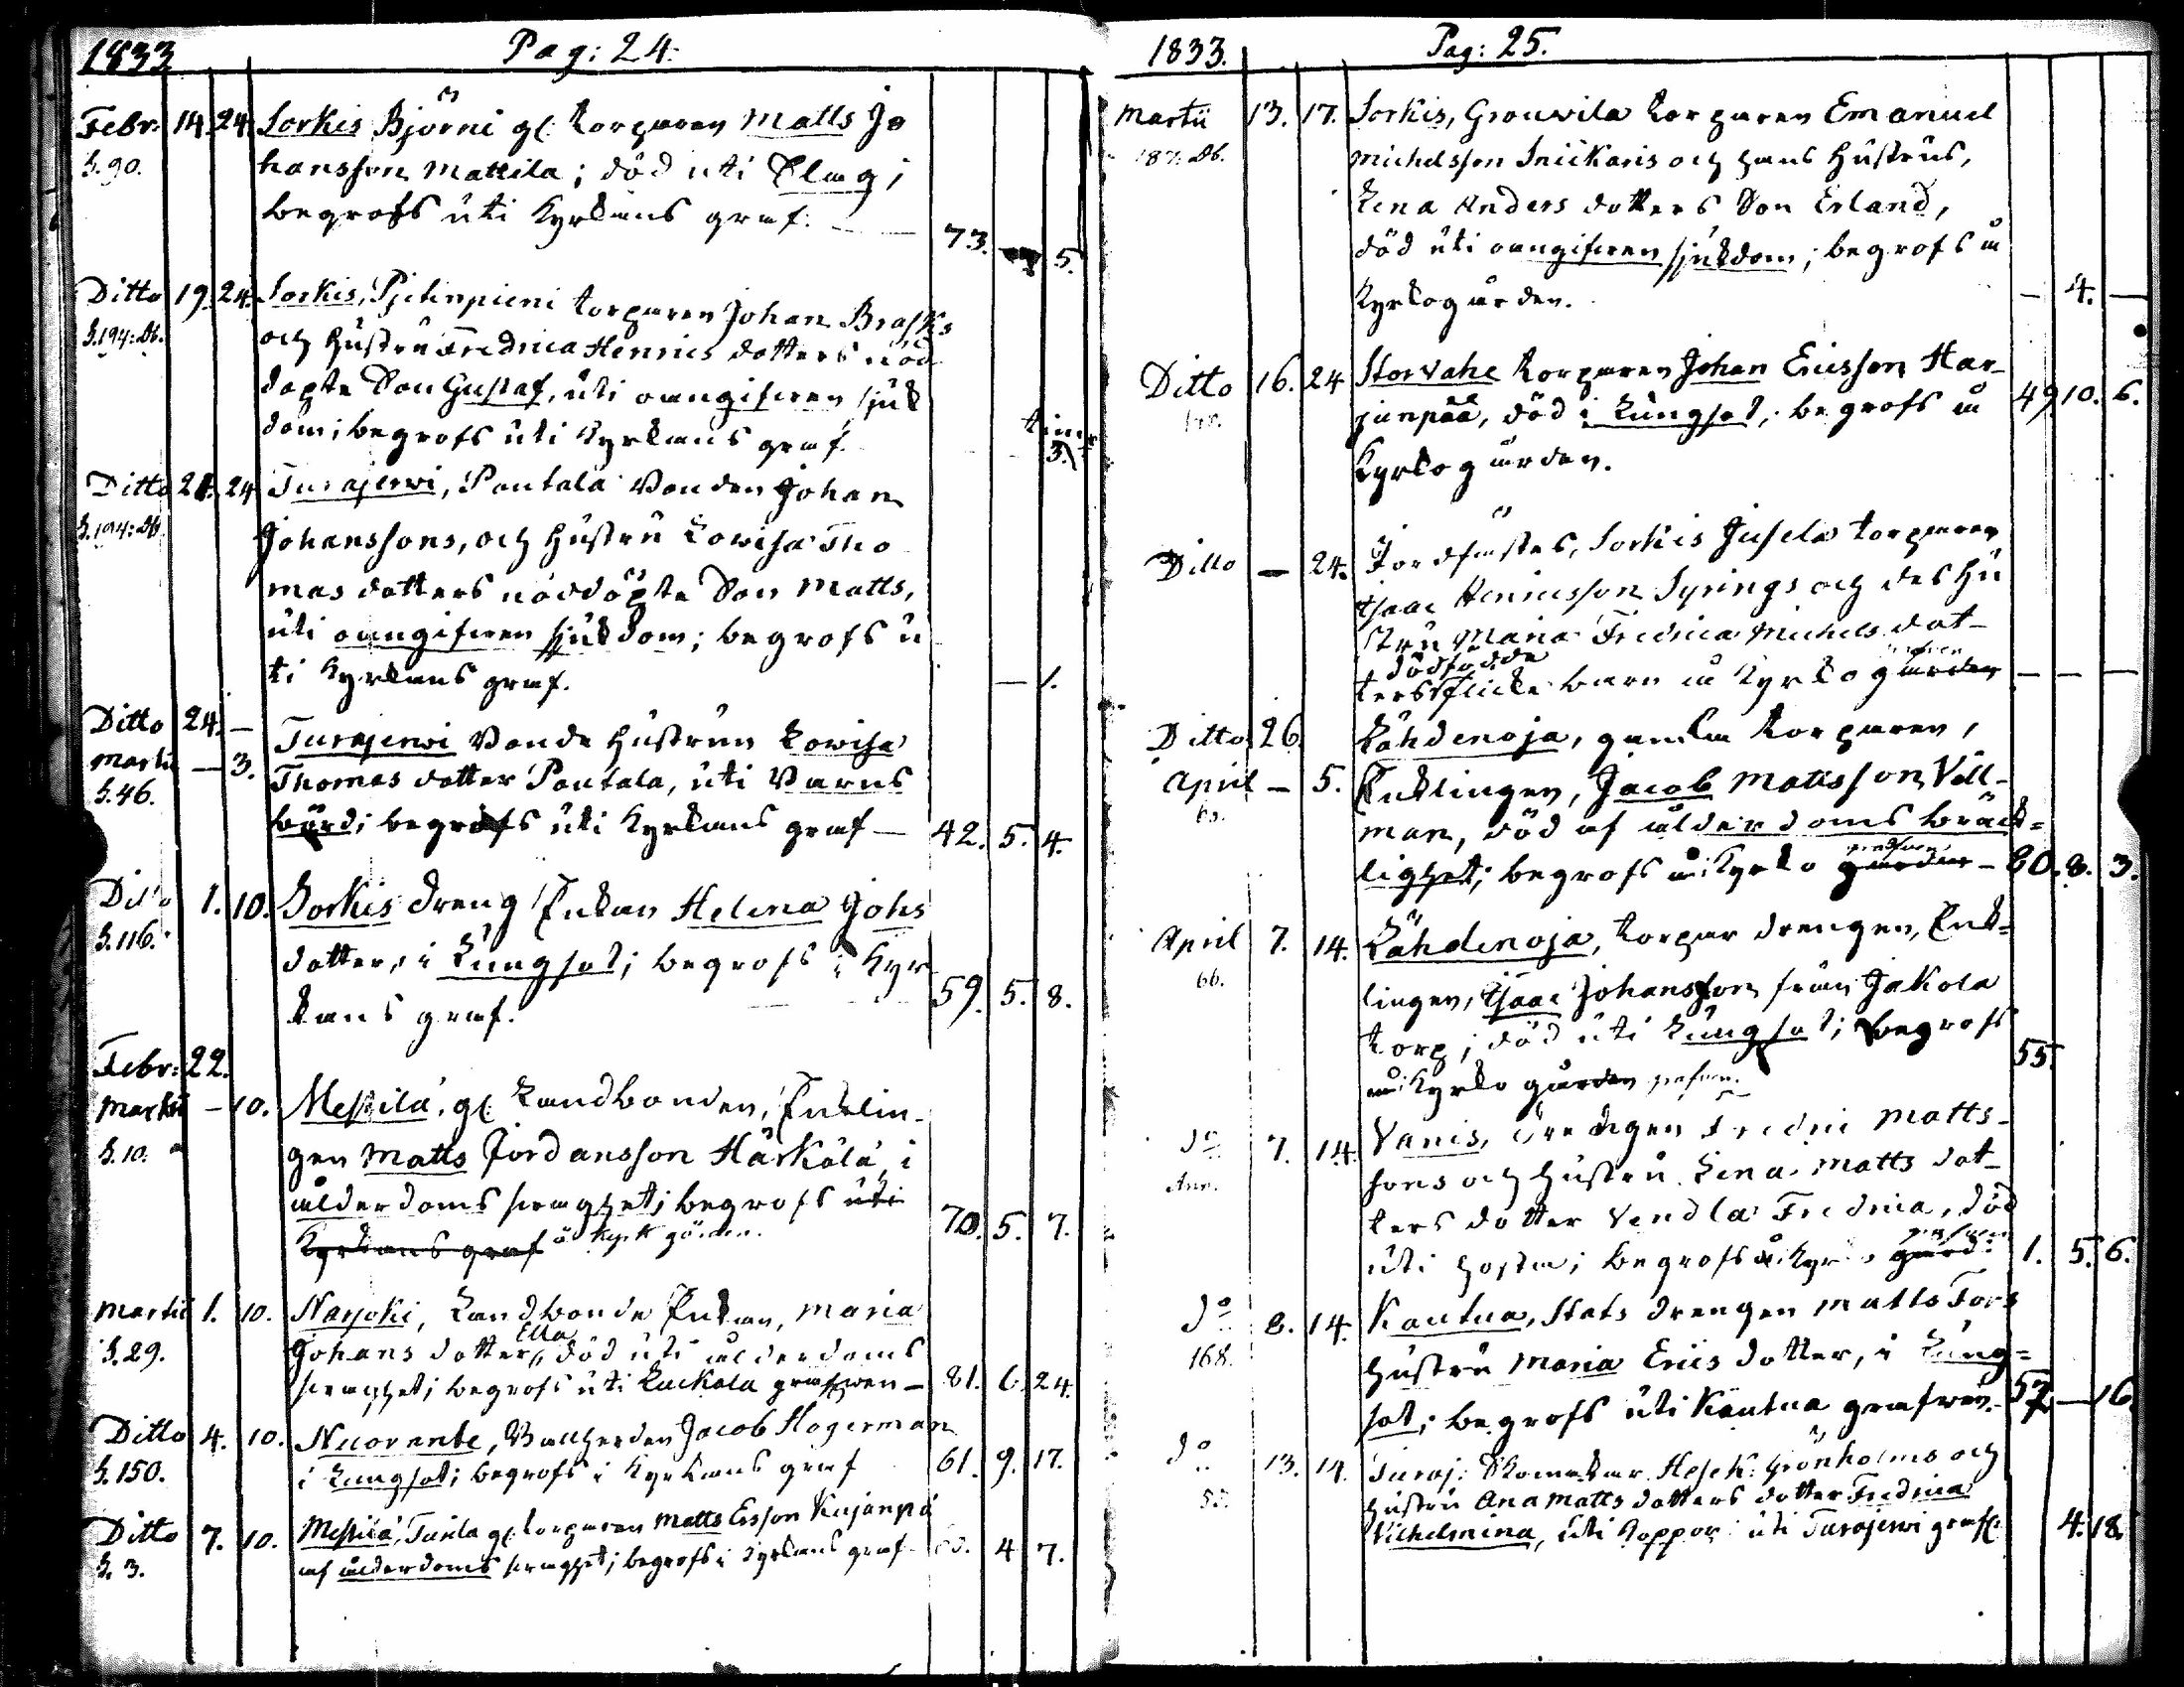 1833
Pag: 24.
Febr. 14. 24. Sorkis Björni gl. torparen Matts Jo
S. 90. hansson Mattila; död uti Slag;
begrofs uti Kyrkans graf. 73. 5.
Ditto 19. 24. Sorkis, Pjetinpieni torparen Johan Brasks
S. 194: Db. och hustru Fredrica Henrics dotters nöd
döpte Son Gustaf, uti oangifwen sjuk
dom; begrofs uti Kyrkans graf. tim 3.
Ditto 21. 24 Turajerwi, Pantala Bonden Johan
S. 194: Db. Johanssons, och hustru Lowisa Tho
mas dotters nöddöpte Son Matts,
uti oangifwen sjukdom; begrofs u
ti Kyrkans graf. — 1.
Ditto 24. —
Martii — 3. Turajerwi Bonde hustrun Lowisa
S. 46. Thomas dotter Pantala, uti Barns
börd; begrofs uti Kyrkans graf — 42. 5. 4.
Ditto 1. 10. Sorkis dreng Enkan Helena Johs
S. 116. dotter, i Lungsot; begrofs i Kyr
kans graf. 59. 5. 8.
Febr: 22.
Martii — 10. Messilä, gl. Landbonden, Enklin-
S. 10. gen Matts Jordansson Härkälä, i
ålderdoms swaghet; begrofs uti
Kyrkans graf å Kyrk gården. 70. 5. 7.
Martii 1. 10. Narjoki, Landbonde Enkan, Maria
S. 29. Johans dotter Ella, död uti ålderdoms
swaghet; begrofs uti Luckola grafwen — 81. 6. 24.
Ditto 4. 10. Nuoranbe, Wallherden Jacob Hagerman
S. 150. i Lungsot; begrofs i Kyrkans graf 61. 9. 17.
Ditto 7. 10. Messilä, Turila gl. torparen Matts Ersson Kujanpä
S. 3. af ålderdoms swaghet; begrofs i Kyrkans graf 4 7.
1833.
Pag: 25.
Martii 13. 17. Sorkis, Grouwila torparen Emanuel
187. Db. Michelsson Snickaris och hans hustrus,
Lena Anders dotters Son Erland,
död uti oangifwen sjukdom; begrofs å
Kyrkogården. — 4. —
Ditto 16. 24 Storvahe torparen Johan Ericsson Har-
junpää, död i Lungsot; begrofs å 49. 10. 6.
Kyrkogården.
Ditto — 24. Jordfästes, Sorkis Jusela torparen
Isaac Henricsson Syrings och des hu
stru Maria Fredrica Michels dot-
ters dödfödde flicke barn å Kyrkogården — — —
Ditto 26. Lähdenoja, gamla torparen,
April — 5. Enklingen, Jacob Mattsson Vell-
man, död af ålderdoms bräck=
lighet; begrofs å Kyrko gården — 80. 8. 3.
April 7. 14. Lähdenoja, torpar drengen, Enk=
66. lingen, Isaac Johansson från Jakola
torp; död uti Lungsot; begrofs 55.
å Kyrko gården
do 7. 14. Vanis, drengen Fredric Matts-
sons och hustru Lena Matts dot-
ters dotter Vendla Fredrica, död
uti hosta; begrofs å Kyrko gård: 1. 5. 6.
do 8. 14. Kautua, Stats drengen Matts Fors
168. hustru Maria Erics dotter, i Lung=
sot; begrofs uti Kautua grafwen. 57 — 16.
do 13. 14. Turaj: Skomakar Hesek: Grönholms och
hustru Ana Matts dotters dotter Fredrica
Vilhelmina, uti koppor; uti Turajerwi graf. 4. 18.